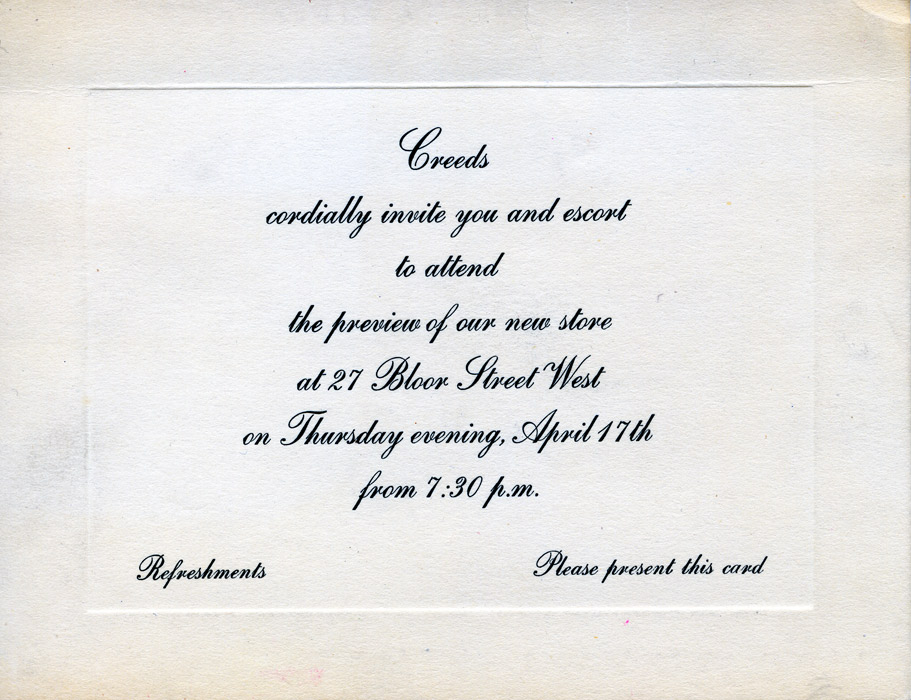 Creeds
cordially invite you and escort
to attend
the preview of our new store
at 27 Bloor Street West
on Thursday evening, April 17th
from 7:30 p.m.
Refreshments
Please present this card